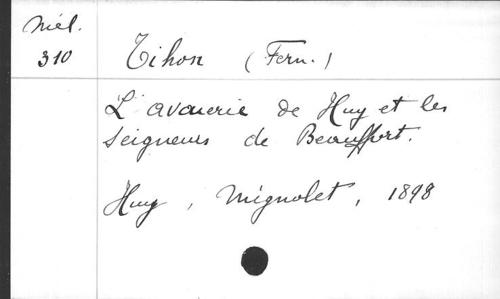 Mél.
310
Tihon (Fern.)
L'avouerie de Huy et les
Seigneurs de Beauffort.
Huy, Mignolet, 1898